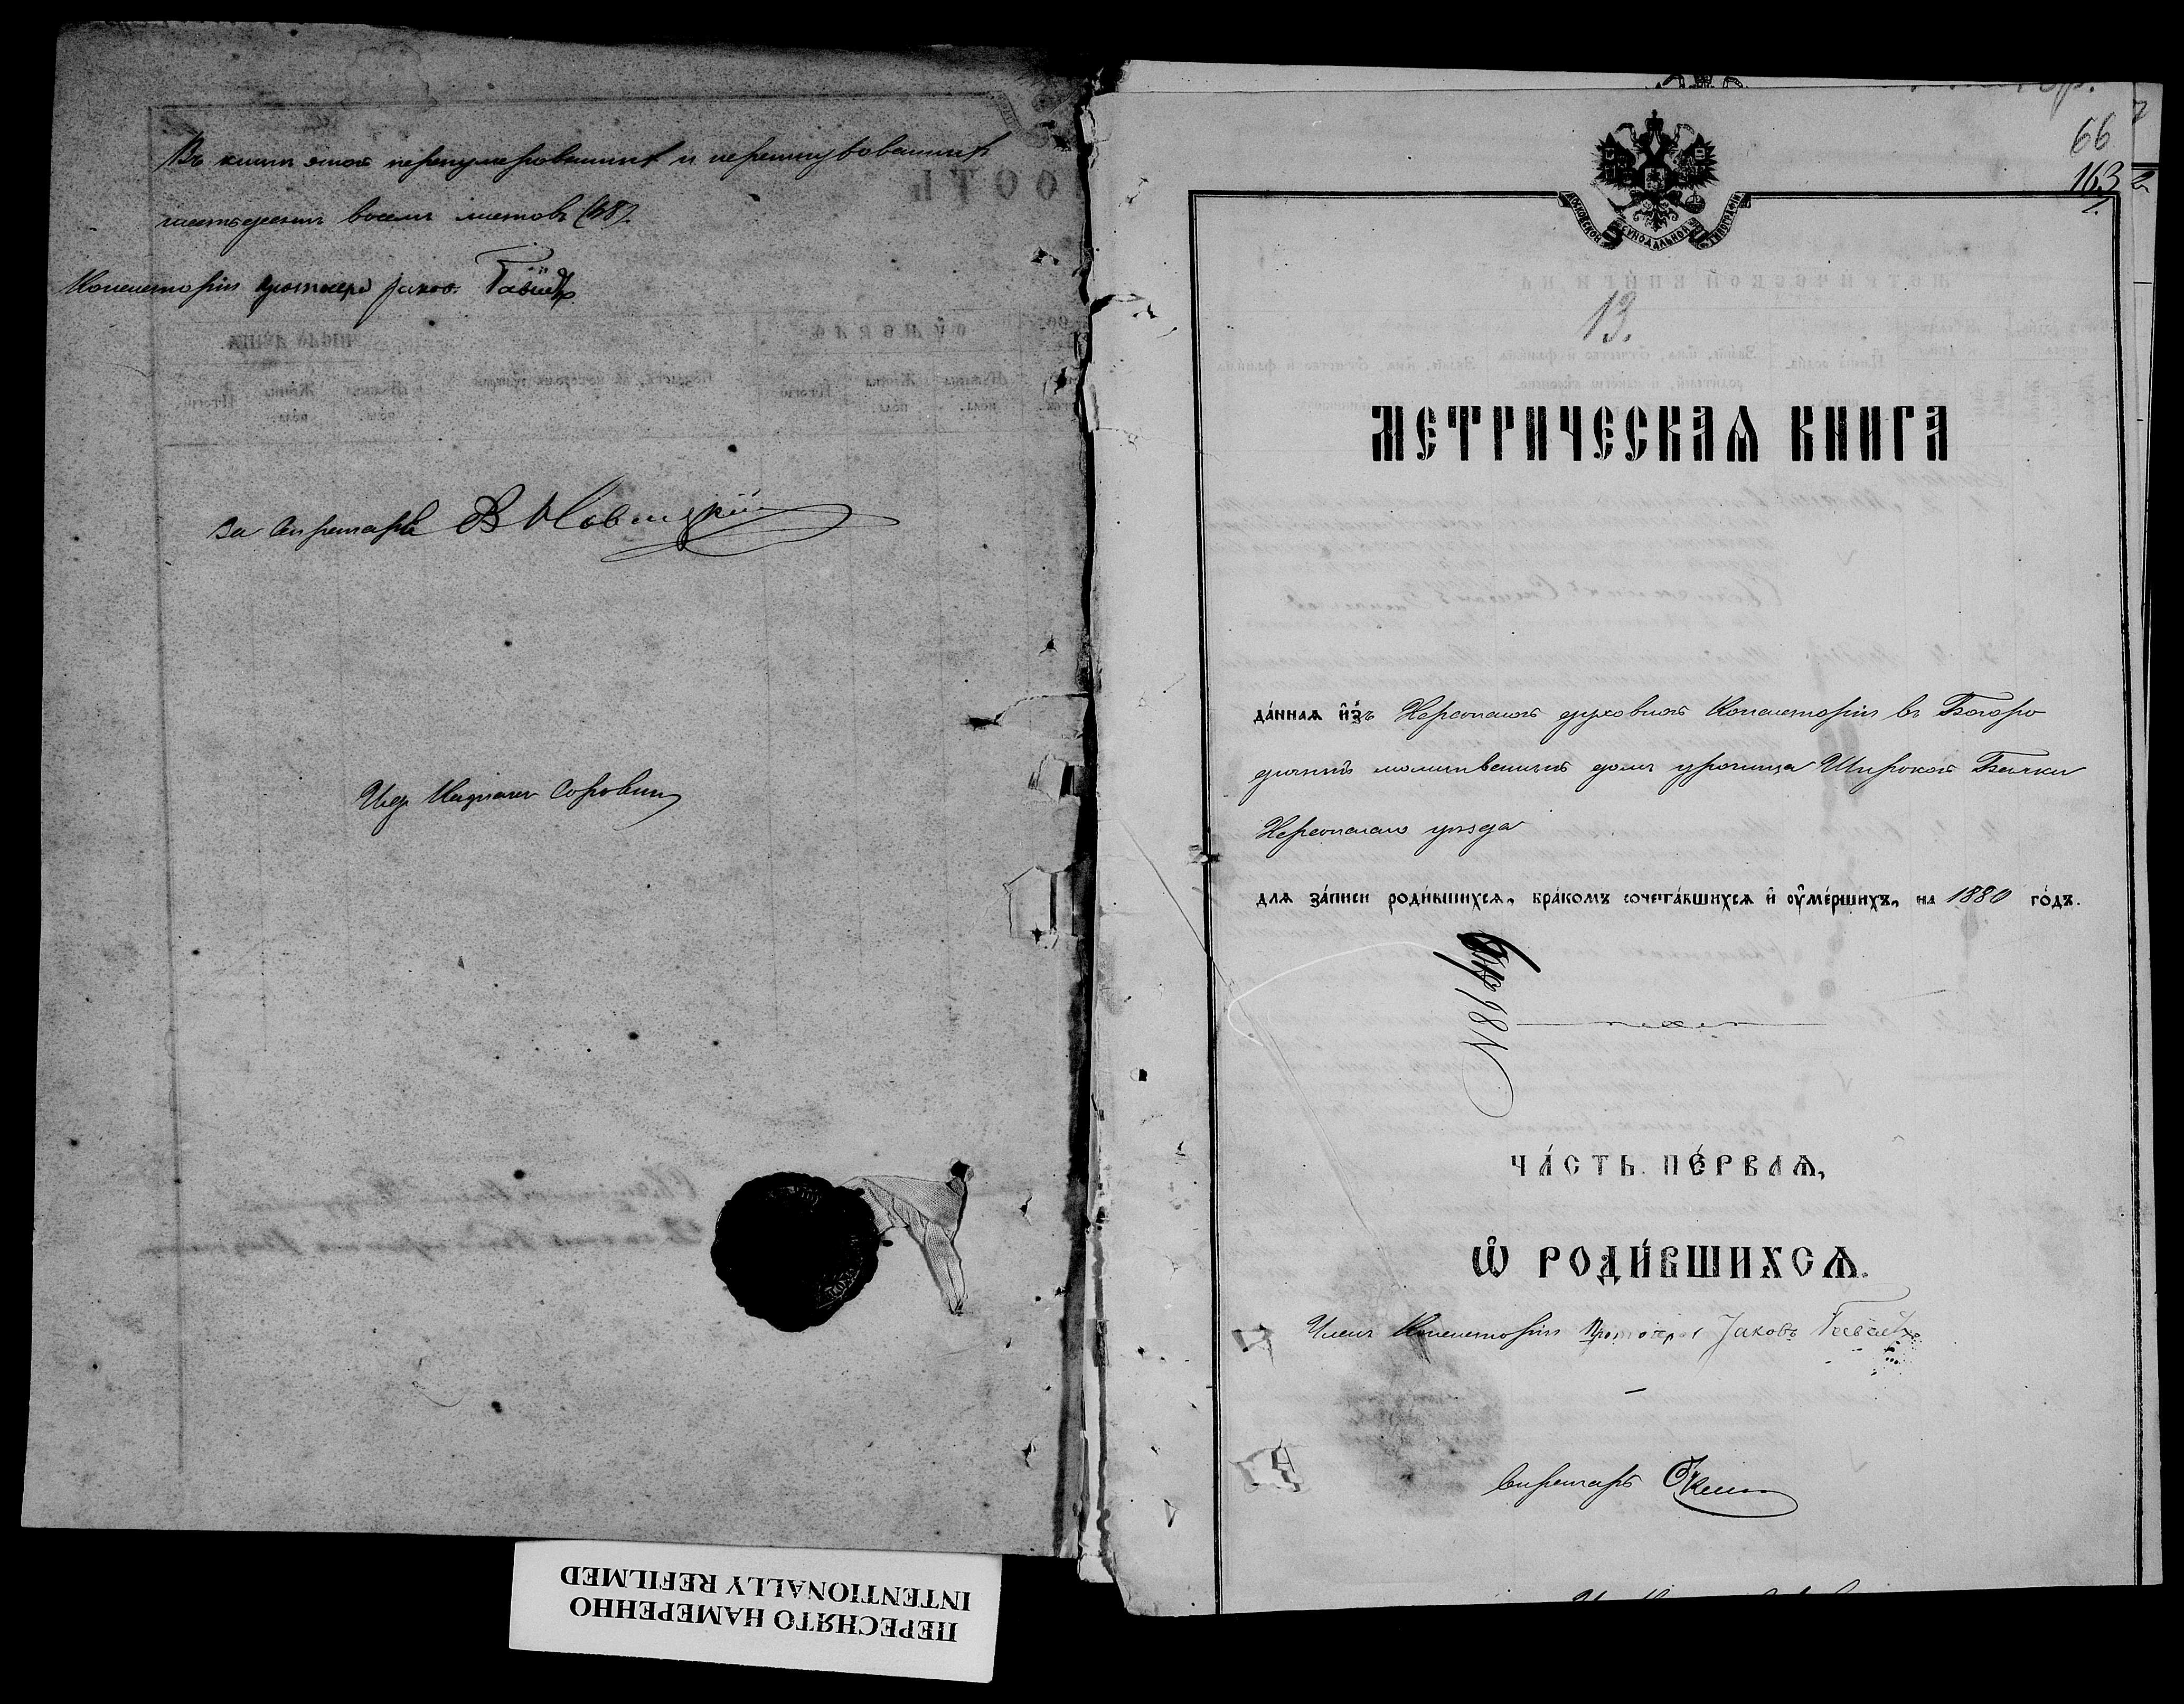 Въ книгѣ этой перенумерованныхъ и перешнурованныхъ
шестьдесятъ восемь листовъ (68).
Консисторіи Протоіерей Іаковъ
За Секретаря В Новицкій
66
163
МОСКОВСКОЙ СУНОДАЛЬНОЙ ТИПОГРАФІИ
13.
МЕТРИЧЕСКАѦ КНИГА
да́ннаѧ и҆зъ Херсонской духовной Консисторіи въ Богоро
дичный молитвенный домъ урочища Широкой Балки
Херсонскаго уѣзда
длѧ за́писи роди́вшихсѧ, бра́комъ сочета́вшихсѧ и҆ ᲂу҆ме́ршихъ, на 1880 го́дъ.
ЧА́СТЬ ПЕ́РВАѦ,
Ѡ҆ РОДИ́ВШИХСѦ.
Членъ Консисторіи Протоіерей Іаковъ
Секретарь
ПЕРЕСНЯТО НАМЕРЕННО
INTENTIONALLY REFILMED